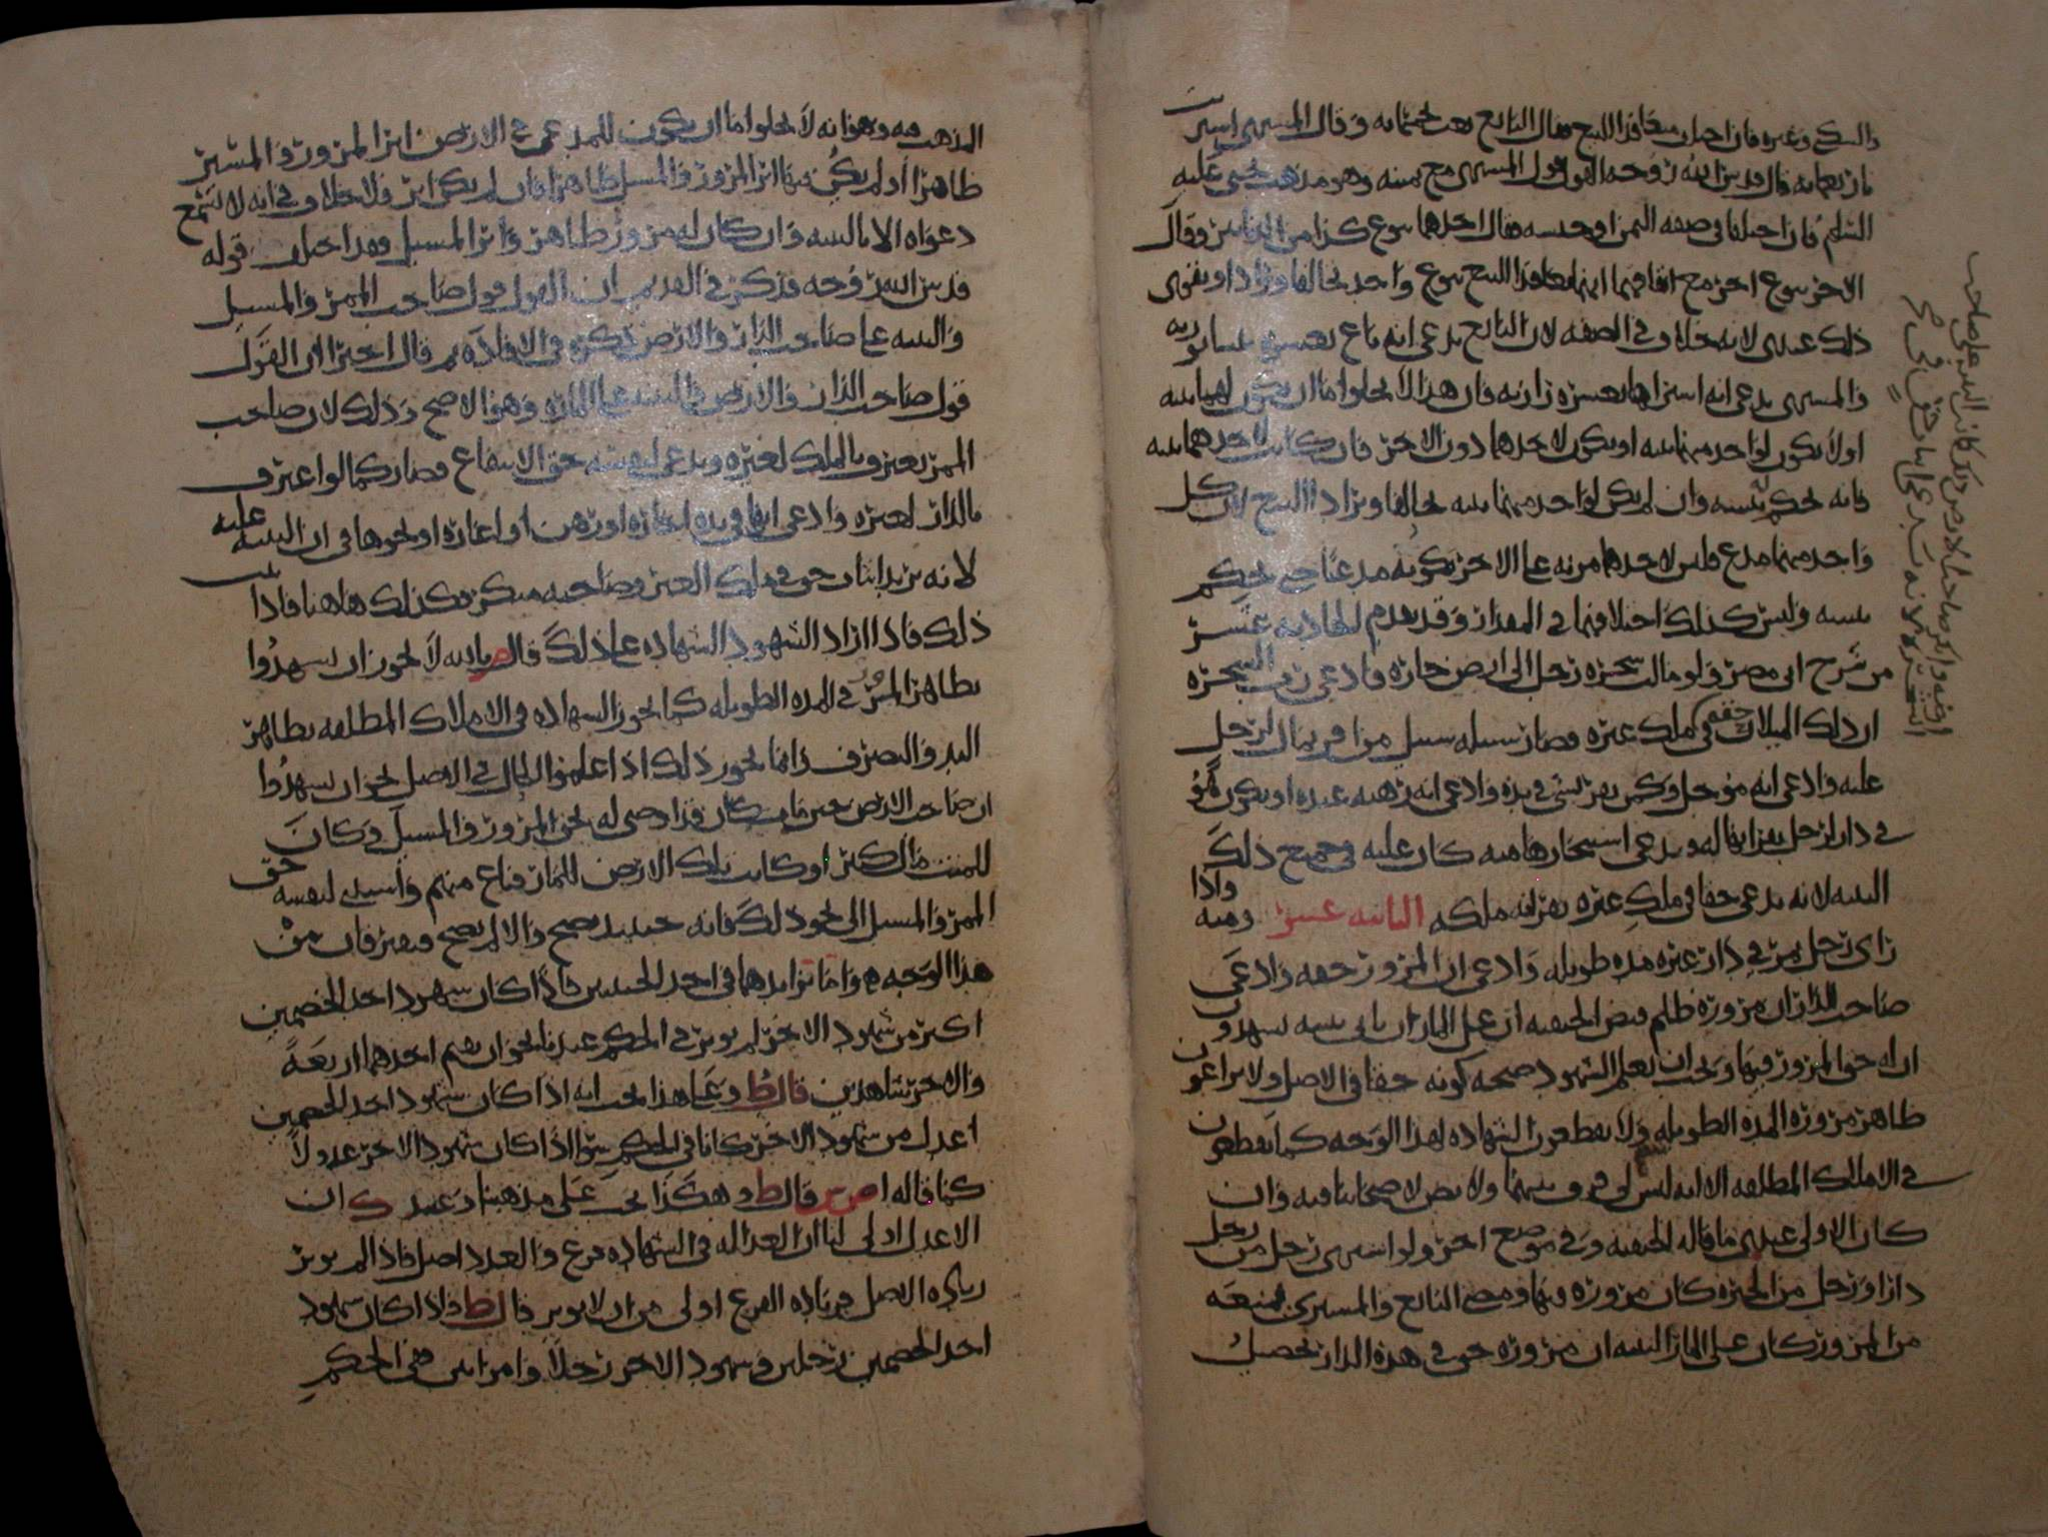 والسكر وغيره فان اختلف متعاقدا البيع فقال البائع بعت بخمسمائه وقال المشتري اشتريت
باربعمائه قال قدس الله روحه القول قول المشتري مع يمينه وهو مذهب يحيى عليه
السلام فان اختلفا في صفه الثمن او جنسه فقال احدهما بنوع كذا من الدنانير وقال
الاخر بنوع اخر مع اتفاقهما انهما تعاقدا البيع بنوع واحد تحالفا وترادا ويقوى
ذلك عندي لانه خلاف في الصفه لان البائع يدعي انه باع بعشره نيسابوريه
والمشتري يدعي انه اشتراها بعشره رازيه فان هذا لا يخلوا اما ان يكون لهما بينه
اولا يكون لواحد منهما بينه او يكون لاحدهما دون الاخر فان كانت لاحدهما بينه
فانه يحكم ببينته وان لم يكن لواحد منهما بينه تحالفا وترادا البيع لان كل
واحد منهما مدع فليس لاحدهما مزيه على الاخر بكونه مدعيا حتى يحكم
ببينته وليس كذلك اختلافهما في المقدار وقد تقدم الحاديه عشر
من شرح ابي مضر ولو مالت شجره رجل الى ارض جاره فادعى رب الشجره
ان ذلك الميلان حقه في ملك غيره وصار سبيله سبيل من اقر بمال لرجل
عليه وادعى انه مؤجل وكمن يقر بشي في يده وادعى انه رهنه عنده او يكون هو
في دار لرجل يقر انها له ويدعي استيجارها منه كان عليه في جميع ذلك
البينه لانه يدعي حقا في ملك غيره يقر انه ملكه الثانيه عشر ومنه واذا
راى رجل يمر في دار غيره مده طويله وادعى ان المرور حقه وادعى
صاحب الدار ان مروره ظلم فنص الحنفيه ان على المار ان ياتي ببينه يشهدون
ان له حق المرور فيها ويجب ان يعلم الشهود صحه كونه حقا في الاصل ولا يراعون
ظاهر مروره المده الطويله ولا يقطعون الشهاده لهذا الوجه كما يقطعون
في الاملاك المطلقه الا انه ليس لي فرق بينهما ولا نص لاصحابنا فيه وان
كان الاولى عندي ما قاله الحنفيه وفي موضع اخر ولو اشترى رجل من رجل
دارا ورجل من الجيره كان مروره فيها ومضى البائع والمشتري يمنعه
من المرور كان على المار البينه ان مروره حق في هذه الدار تحصيل
المذهب فيه وهو انه لا يخلوا اما ان يكون للمدعي في الارض اثر المرور والمسيل
ظاهرا او لم يكن فيها اثر المرور والمسيل ظاهرا فان لم يكن اثر فلا خلاف في انه لا تسمع
دعواه الا بالبينه وان كان له مرور ظاهر واثر المسيل فقد اختلف قوله
قدس الله روحه فذكر في القديم ان القول قول صاحب الممر والمسيل
والبينه على صاحب الدار والارض ذكره في الافاده ثم قال اخيرا ان القول
قول صاحب الدار والارض والبينه على الماره وهو الاصح وذلك لان صاحب
الممر يعترف بالملك لغيره ويدعي لنفسه حق الانتفاع فصار كما لو اعترف
بالدار لغيره وادعى انها في يده اجاره او رهن او اعاره او نحوها في ان البينه عليه
لانه يريد اثبات حق في ملك الغير وصاحبه منكر فكذلك هاهنا فاذا ثبت
ذلك فاذا اراد الشهود الشهاده على ذلك قال ص بالله لا يجوز ان يشهدوا
بظاهر المرور في المده الطويله كما يجوز الشهاده في الاملاك المطلقه بظاهر
اليد والتصرف وانما يجوز ذلك اذا علموا الحال في الاصل نحو ان يشهدوا
ان صاحب الارض حين مات كان قد اوصى له بحق المرور والمسيل وكان
للميت مال كثير او كانت تلك الارض للمار فباع منهم واستثنى لنفسه حق
الممر والمسيل الى نحو ذلك فانه حينئذ يصح والا لم يصح
هذا الوجه واما تزايدهما في احد الجنبتين فاذا كان شهود احد الخصمين
اكثر من شهود الاخر لم يوثر في الحكم عندنا نحو ان يقيم احدهما اربعه
والاخر شاهدين قال ط وعلى هذا يجب انه اذا كان شهود احد الخصمين
اعدل من شهود الاخر كانا في الحكم سوا اذا كان شهود الاخر عدولا
كما قاله قال ط وهكذا يجب على مذهبنا وعند ك ان
الاعدل اولى لنا ان العداله في الشهاده فرع والعدد اصل فاذا لم يوثر
زياده الاصل فزياده الفرع اولى من ان لا يوثر قال ط واذا كان شهود
احد الخصمين رجلين وشهود الاخر رجلا وامراتين ففي الحكم